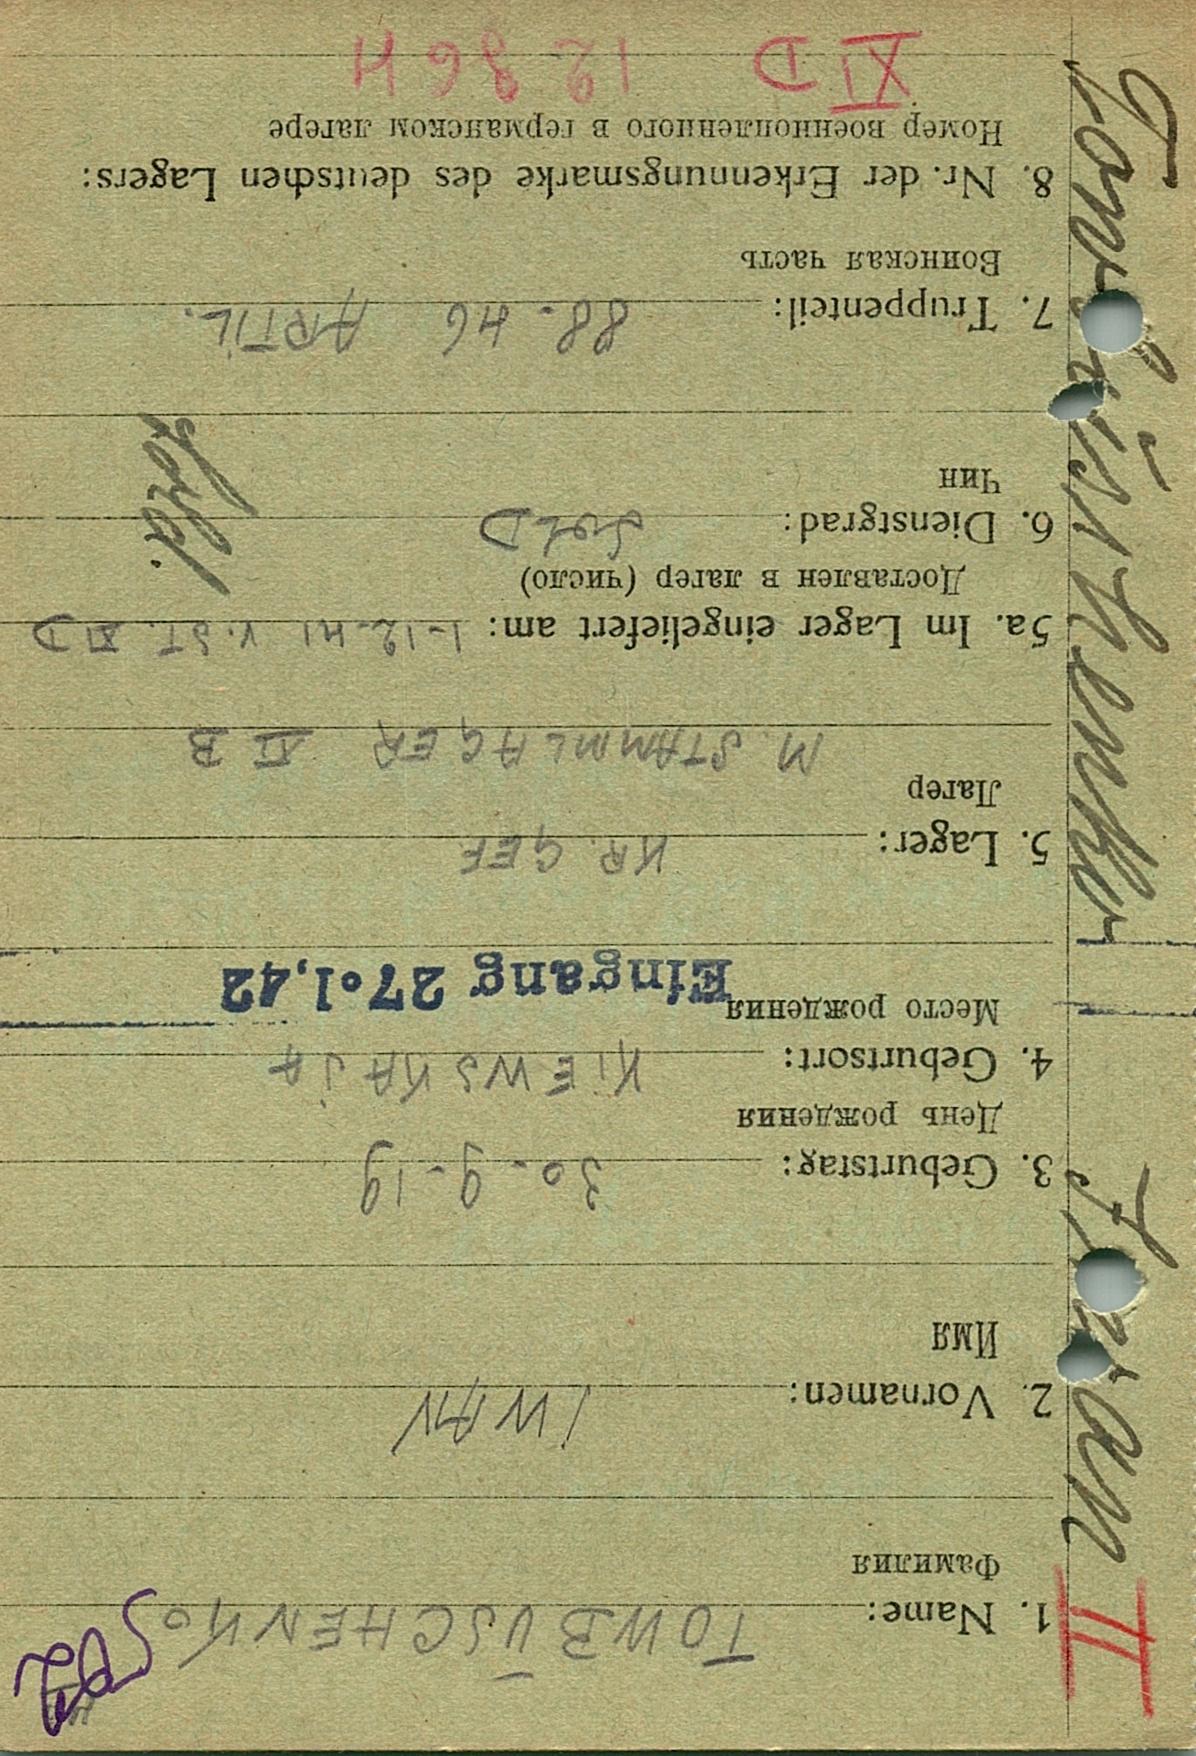 II
1. Name: TOWBÜSCHENKO
Фамилия
2. Vornamen: IWAN
Имя
3. Geburtstag: 30.9.19
День рождения
4. Geburtsort: KIEWSKAJA
Место рождения
Eingang 27.1.42
5. Lager: KR. GEF
Лагер
M. STAMMLAGER XI B
5a. Im Lager eingeliefert am: 1-12-41 V. ST. XI D
Доставлен в лагер (число)
6. Dienstgrad: SOLD
Чин
Sold.
7. Truppenteil: 88-46 ARTIL.
Воинская часть
8. Nr. der Erkennungsmarke des deutschen Lagers:
Номер военнопленного в германском лагере
XI D 12864
Towbüschenko Iwan